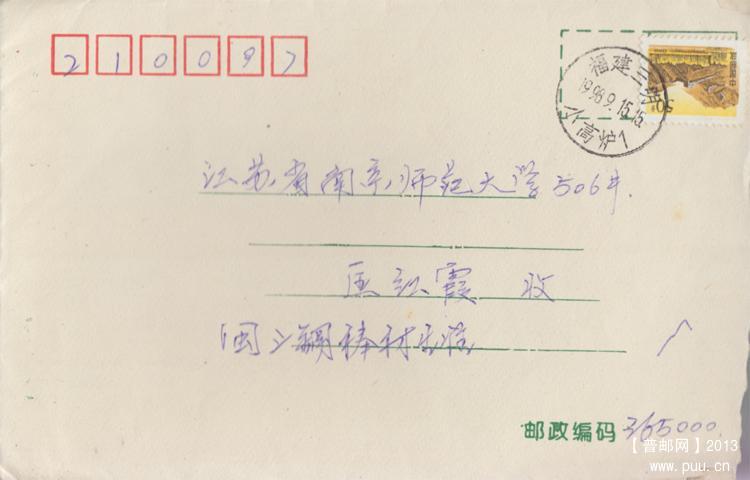 210097
福建三明
1998.9.15.15
小高炉1
50
江苏省南京师范大学506#
匡红霞 收
闽三钢棒材
邮政编码 365000
【普邮网】2013
www.puu.cn